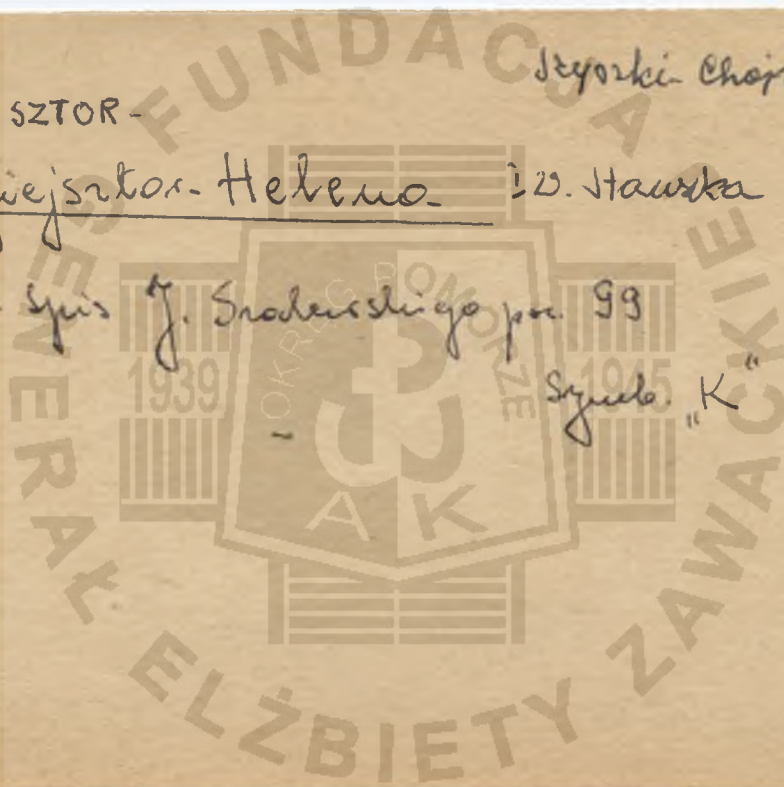 Szyszki-Choj
SZTOR-
iejsztor-Helena I v. Stawska
spis J. Sradewskiego poz. 99
Symb. "K"
FUNDACJA GENERAŁ ELŻBIETY ZAWACKIEJ
OKRĘG POMORZE
1939 1945
AK